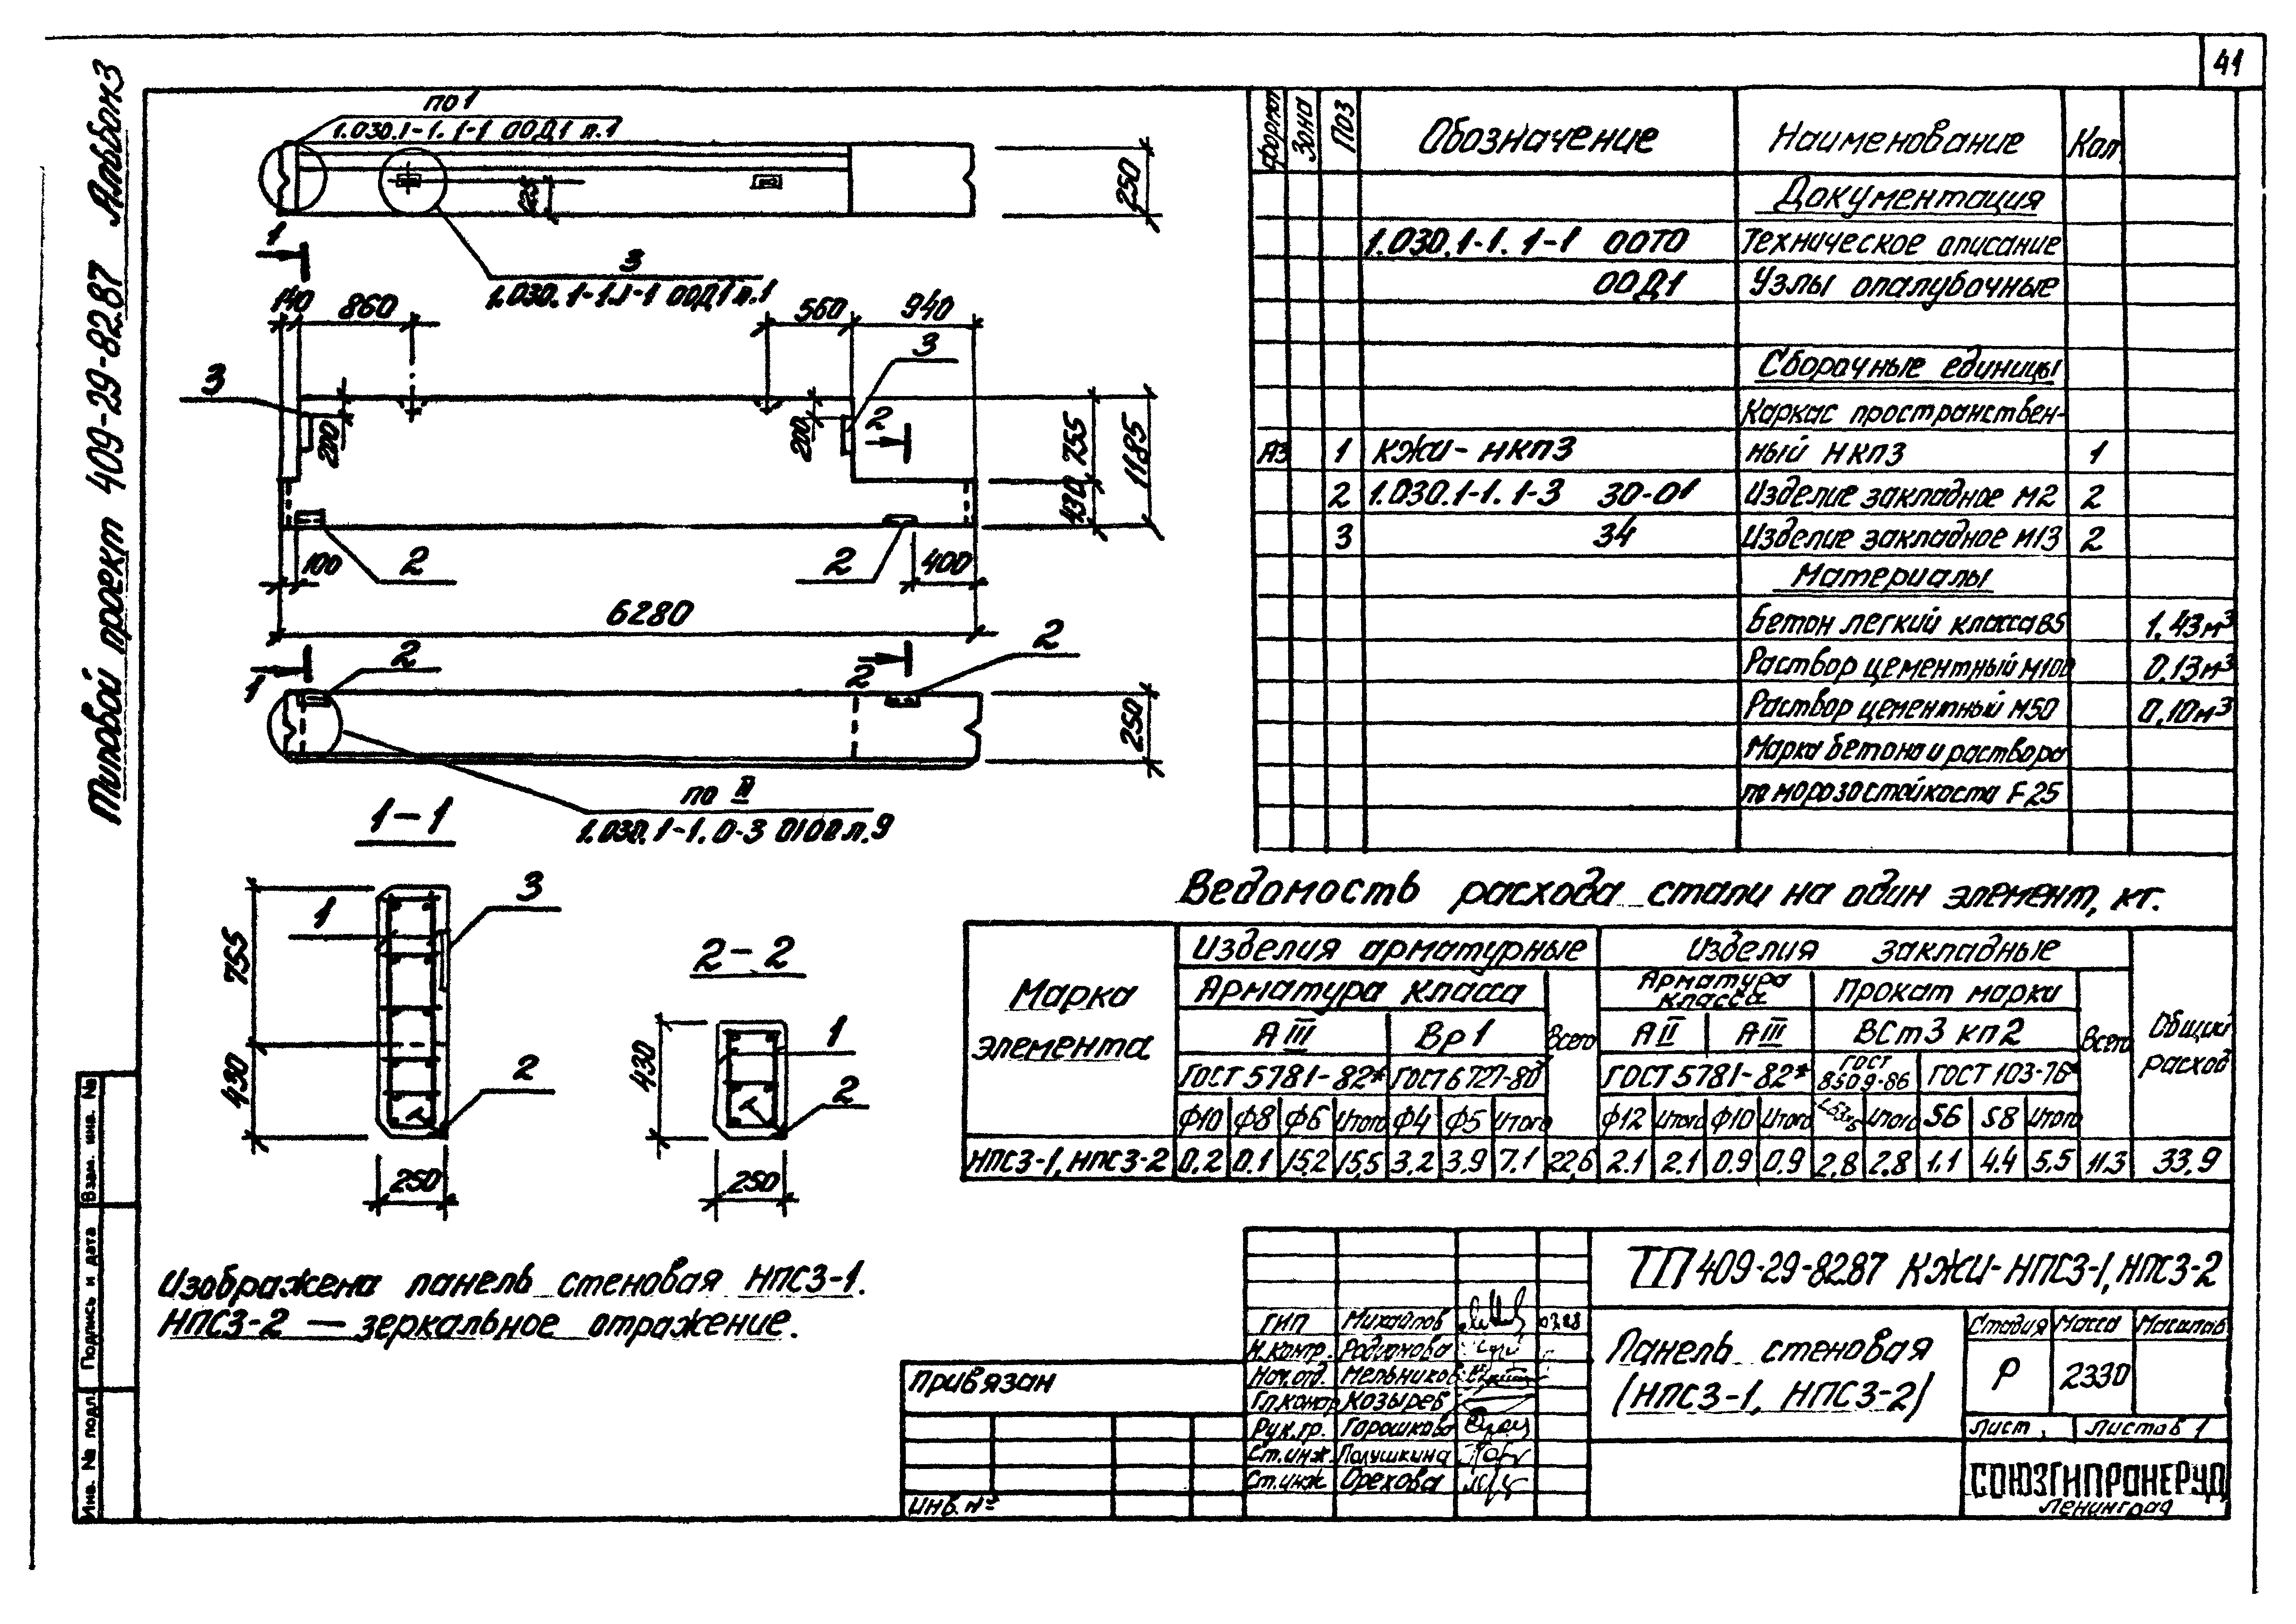 41
Типовой проект 409-29-82.87 Альбом 3
по 1
1.030.1-1. 1-1 00Д1 л.1
125
250
3
1.030.1-1.1-1 00Д1 л.1
1
140
860
560
940
3
3
200
200
2
755
430
1185
100
2
2
400
6280
1
2
2
2
250
по II
1.030.1-1. 0-3 0100 л.9
1-1
755
430
1
3
2
250
2-2
430
1
2
250
Изображена панель стеновая НПС3-1.
НПС3-2 — зеркальное отражение.
Формат Зона Поз Обозначение Наименование Кол
Документация
1.030.1-1. 1-1 00ТО Техническое описание
00Д1 Узлы опалубочные
Сборочные единицы
Каркас пространствен-
А3 1 КЖИ-НКП3 ный НКП3 1
2 1.030.1-1. 1-3 30-01 Изделие закладное М2 2
3 34 Изделие закладное М13 2
Материалы
Бетон легкий класса В5 1.43м³
Раствор цементный М100 0.13м³
Раствор цементный М50 0,10м³
Марка бетона и раствора
по морозостойкости F25
Ведомость расхода стали на один элемент, кг.
Марка элемента
Изделия арматурные
Изделия закладные
Общий расход
Арматура класса
Всего
Арматура класса
Прокат марки
Всего
А III
Вр1
А II
А III
ВСт3 кп2
ГОСТ 5781-82*
ГОСТ 6727-80*
ГОСТ 5781-82*
ГОСТ 8509-86
ГОСТ 103-76*
ф10 ф8 ф6 Итого ф4 ф5 Итого ф12 Итого ф10 Итого Итого S6 S8 Итого
НПС3-1, НПС3-2 0.2 0.1 15,2 15,5 3,2 3.9 7.1 22,6 2.1 2.1 0.9 0.9 2.8 2.8 1.1 4.4 5.5 11.3 33.9
ТП 409-29-82.87 КЖИ-НПС3-1, НПС3-2
ГИП Михайлов 03.88
Н.контр. Родионова
Нач.отд. Мельников
Гл.констр Козырев
Рук.гр. Горошково
Ст.инж. Полушкина
Ст.инж Орехова
Панель стеновая
(НПС3-1, НПС3-2)
Стадия Масса Масштаб
Р 2330
Лист Листов 1
СОЮЗГИПРОНЕРУД
Ленинград
Привязан
Инв. №
Взам. инв. №
Подпись и дата
Инв. № подл.